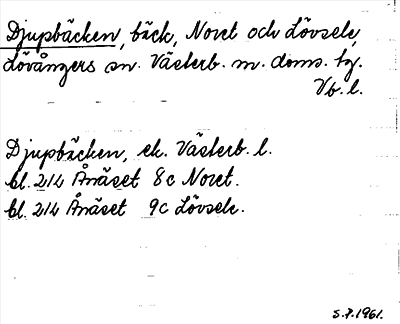 Djupbäcken, bäck, Noret och Lövsele,
Lövångers sn. Västerb. m. doms. tg.
Vb. l.
Djupbäcken, ek. Västerb. l.
bl. 214 Ånäset 8c Noret.
bl. 214 Ånäset 9c Lövsele.
S.F. 1961.